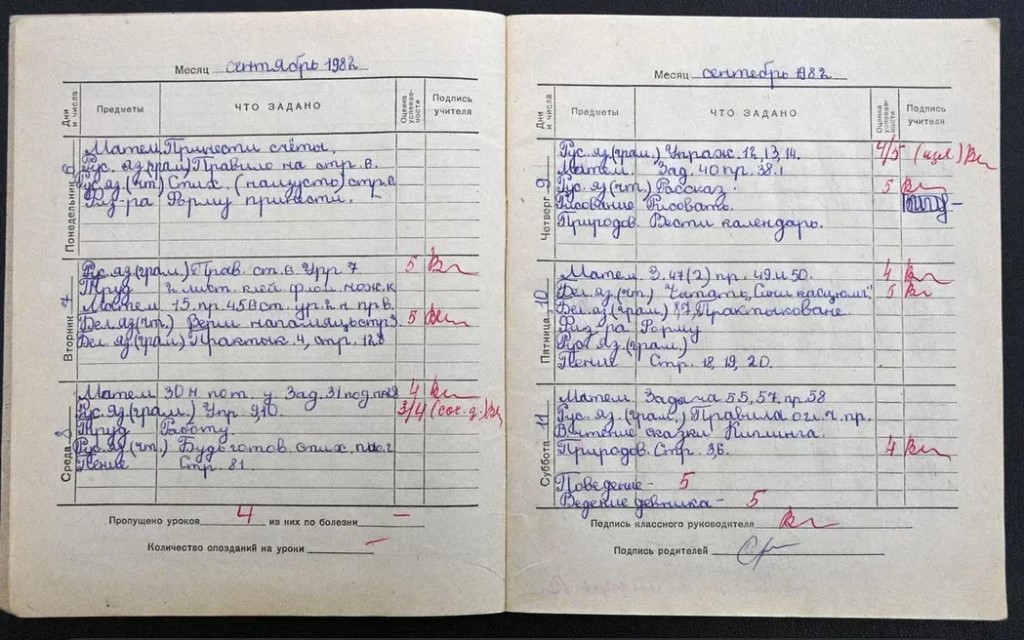 Месяц сентябрь 1982
Дни и числа
Предметы
ЧТО ЗАДАНО
Оценка успеваемости
Подпись учителя
Понедельник 6
Матем. Принести счёты.
Рус. яз. (грам.) Правило на стр. 8.
Рус. яз. (чт.) Стих. (наизусть) стр.
Физ-ра Форму принести.
Вторник 7
Рус. яз. (грам.) Прав. ст. 8. Упр 7 5
Труд 2 лист. клей флом. нож. к
Матем. 15. пр. 45
Бел. яз. (чт.) Верш напамяць стр 3. 5
Бел. яз. (грам.) Практык. 4, стр. 128
Среда 8
Матем. 30 н. пот. у. Зад. 31 под. 4
Рус. яз. (грам.) Упр 9,10. 3/4 (соч. д.)
Труд Работу
Рус. яз. (чт.) Будь готов. стих.
Пение Стр. 81.
Пропущено уроков 4 из них по болезни —
Количество опозданий на уроки —
Месяц сентебрь 1982
Дни и числа
Предметы
ЧТО ЗАДАНО
Оценка успеваемости
Подпись учителя
Четверг 9
Рус. яз. (грам.) Упраж. 12, 13, 14. 4/5
Матем. Зад. 40 пр. 38.1
Рус. яз. (чт.) Рассказ. 5
Рисование Рисовать.
Природов. Вести календарь.
Пятница 10
Матем. З. 47(2) пр. 49 и 50. 4
Бел. яз. (чт.) Чытать „Сини касцюм". 5
Бел. яз. (грам.) Практыкаване
Физ-ра Форму
Рус. яз. (грам.)
Пение Стр. 18, 19, 20.
Суббота 11
Матем. Задача 55, 57, пр. 58
Рус. яз. (грам.) Правила
В. чтение сказки Киплинга.
Природов. Стр. 3,6. 4
Поведение - 5
Ведение девника - 5
Подпись классного руководителя
Подпись родителей